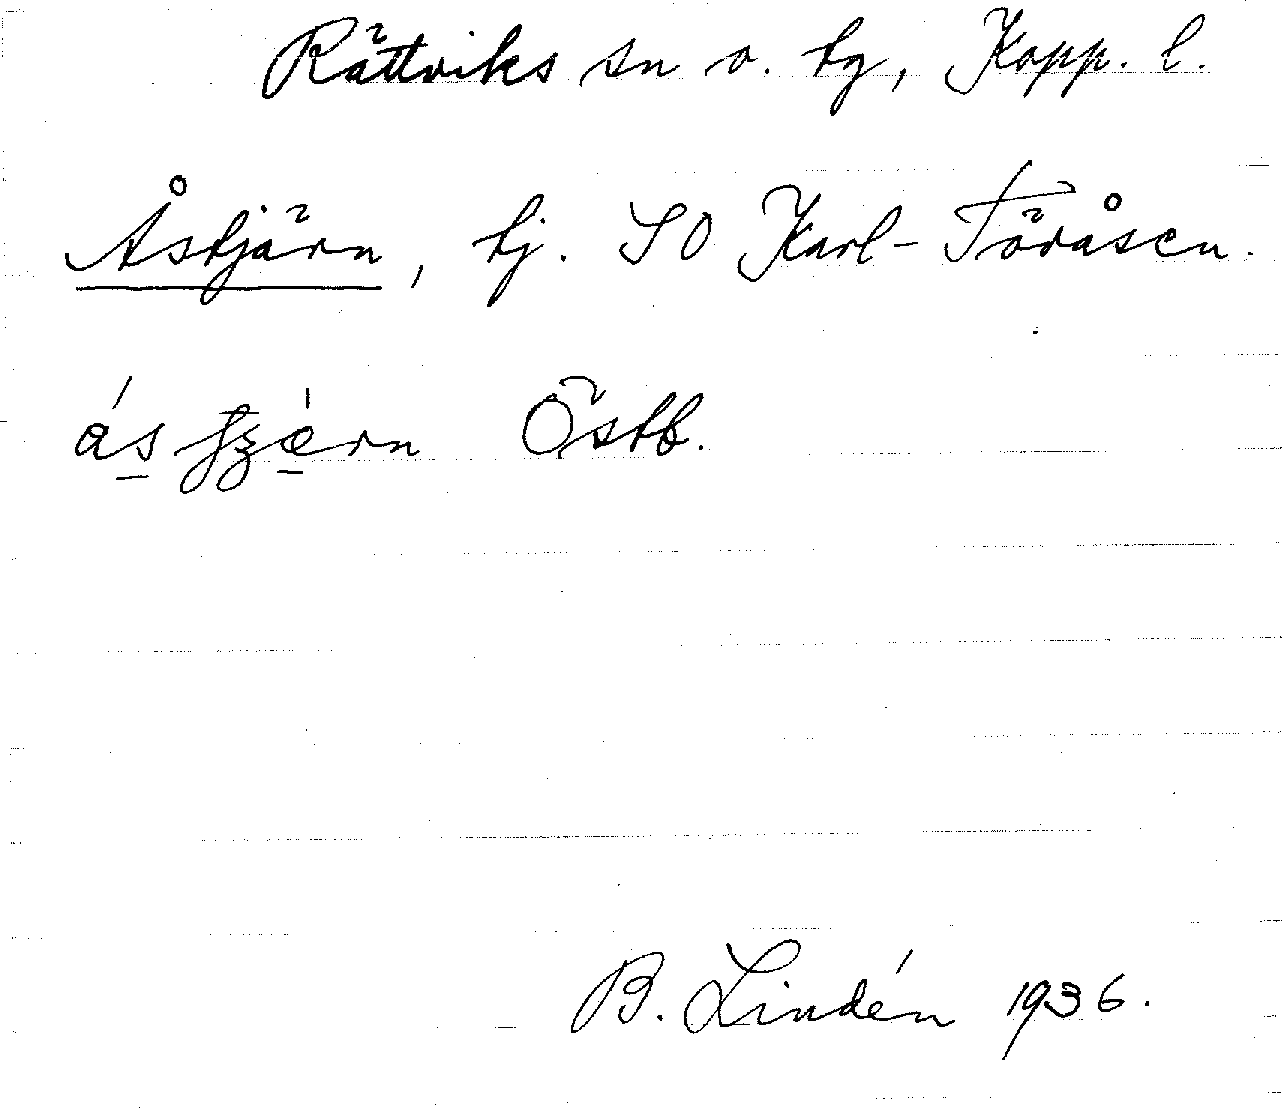 Rättviks sn o. tg, Kopp. l.
Åstjärn, tj. SO Karl-Töråsen.
Östb.
B. Lindén 1936.